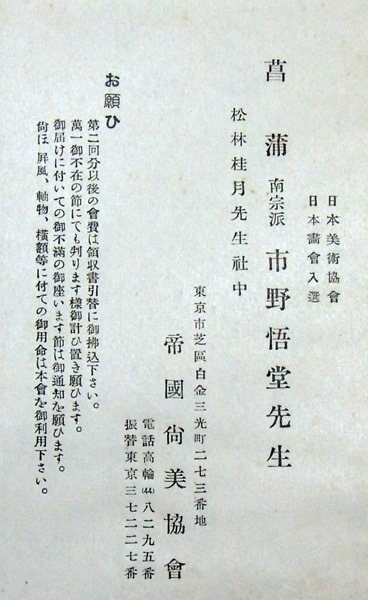 日本美術協會
日本畵會入選
菖蒲 南宗派 市野悟堂先生
松林桂月先生社中
東京市芝區白金三光町二七三番地
帝國尙美協會
電話高輪(44)八二九五番
振替東京三七二二七番
お願ひ
第二回分以後の會費は領収書引替に御拂込下さい。
萬一御不在の節にても判ります樣御計ひ置き願ひます。
御届けに付いての御不滿の御座います節は御通知を願ひます。
尙ほ、屏風、軸物、橫額等に付ての御用命は本會を御利用下さい。